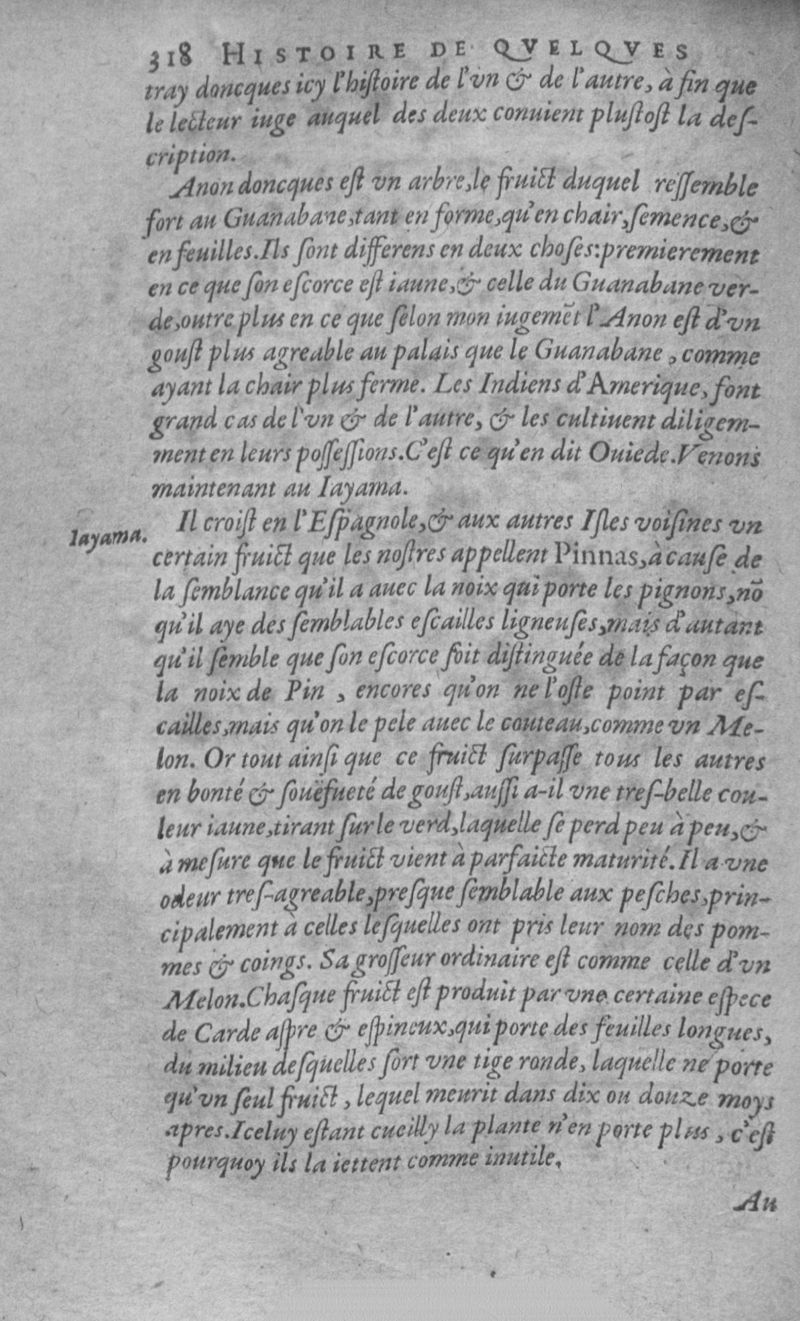 318 HISTOIRE DE QVELQVES
tray doncques icy l'histoire de l'vn & de l'autre, à fin que
le lecteur iuge auquel des deux conuient plustost la des-
cription.
Anon doncques est vn arbre, le fruict duquel ressemble
fort au Guanabane, tant en forme, qu'en chair, semence, &
en feuilles. Ils sont differens en deux choses: premierement
en ce que son escorce est iaune, & celle du Guanabane ver-
de, outre plus en ce que selon mon iugemẽt l'Anon est d'vn
goust plus agreable au palais que le Guanabane, comme
ayant la chair plus ferme. Les Indiens d'Amerique, font
grand cas de l'vn & de l'autre, & les cultiuent diligem-
ment en leurs possessions. C'est ce qu'en dit Ouiede. Venons
maintenant au Iayama.
Iayama.
Il croist en l'Espagnole, & aux autres Isles voisines vn
certain fruict que les nostres appellent Pinnas, à cause de
la semblance qu'il a auec la noix qui porte les pignons, nõ
qu'il aye des semblables escailles ligneuses, mais d'autant
qu'il semble que son escorce soit distinguée de la façon que
la noix de Pin, encores qu'on ne l'oste point par es-
cailles, mais qu'on le pele auec le couteau, comme vn Me-
lon. Or tout ainsi que ce fruict surpasse tous les autres
en bonté & souëfueté de goust, aussi a-il vne tres-belle cou-
leur iaune, tirant sur le verd, laquelle se perd peu à peu, &
à mesure que le fruict vient à parfaicte maturité. Il a vne
odeur tres-agreable, presque semblable aux pesches, prin-
cipalement à celles lesquelles ont pris leur nom des pom-
mes & coings. Sa grosseur ordinaire est comme celle d'vn
Melon. Chasque fruict est produit par vne certaine espece
de Carde aspre & espineux, qui porte des feuilles longues,
du milieu desquelles sort vne tige ronde, laquelle ne porte
qu'vn seul fruict, lequel meurit dans dix ou douze moys
apres. Iceluy estant cueilly la plante n'en porte plus, c'est
pourquoy ils la iettent comme inutile.
Au